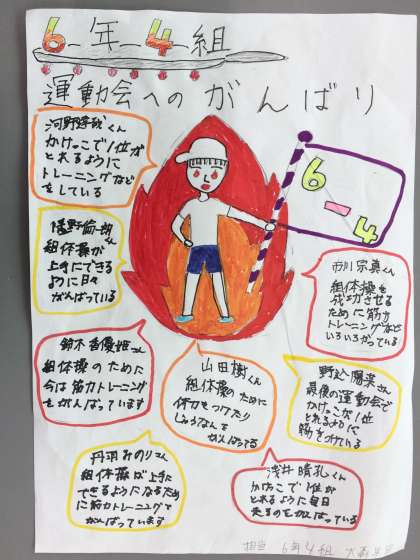 6年4組
運動会へのがんばり
河野 くん
かけっこで1位が
とれるように
トレーニングなど
をしている
組体操が
上手にできる
ように日々
がんばっている
6-4
市川宗真くん
組体操を
成功させる
ために筋力
トレーニングなど
いろいろがっている
鈴木 優姫さん
組体操のために
今は筋力トレーニング
をがんばっています
山田樹くん
組体操のために
体力をつけたり
じゅうなんを
がんばってる
野 陽菜さん
最後の運動会で
かけっこが1位
とれるように
筋をつけている
丹羽みのりさん
組体操が上手に
できるようになるため
に筋力トレーニングを
がんばっています
浅井晴孔くん
かけっこで1位が
とれるように毎日
走るのをがんばっている
担当 6年4組